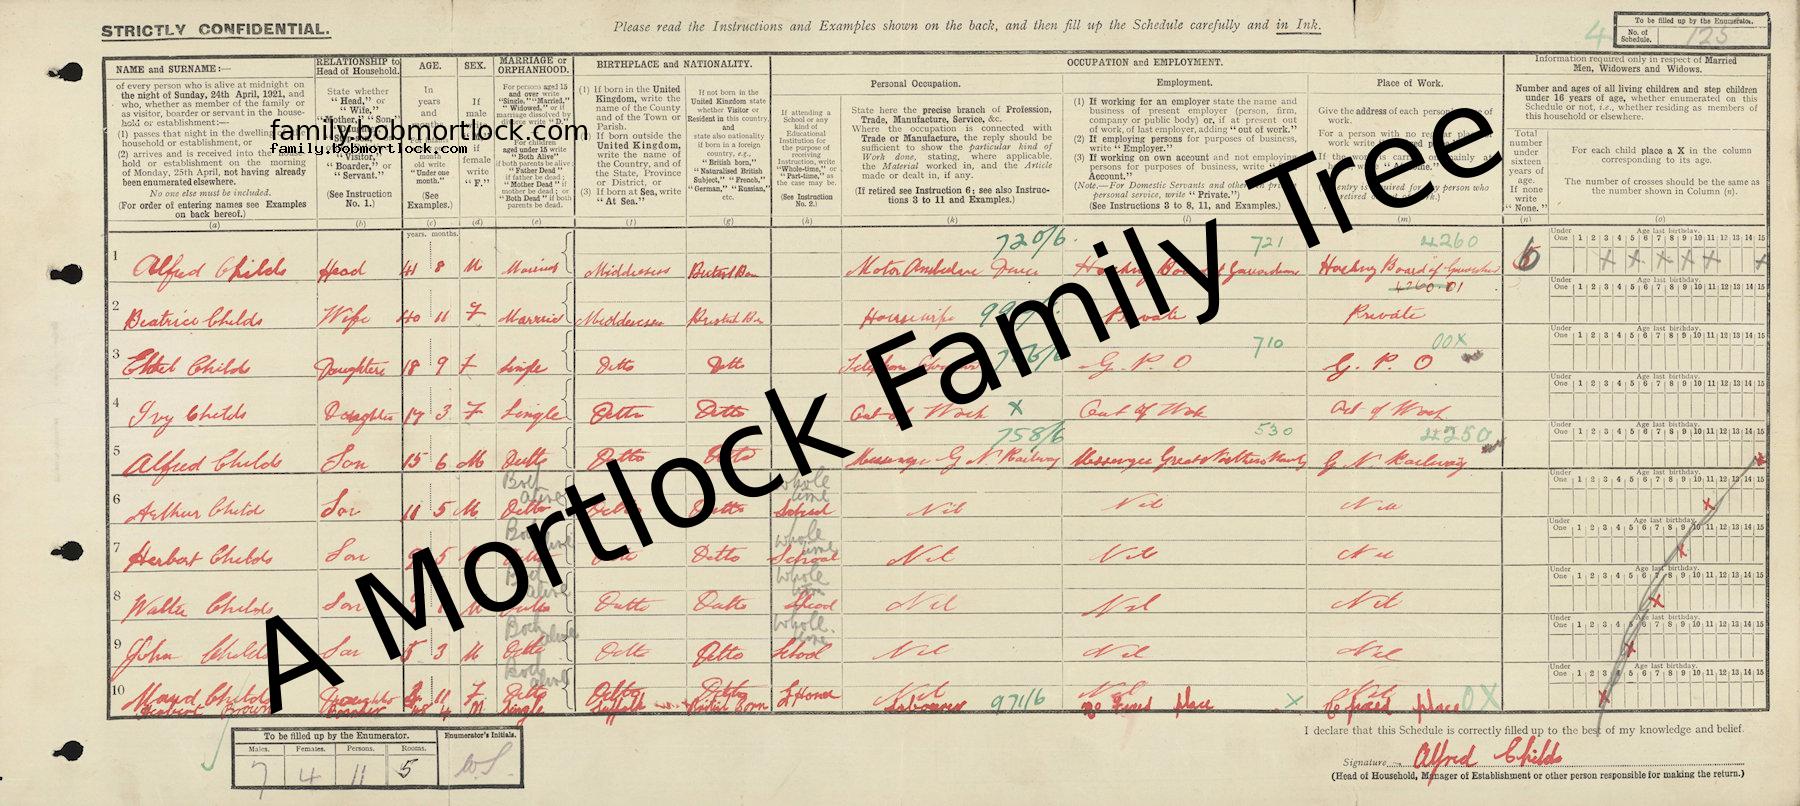 STRICTLY CONFIDENTIAL.
Please read the Instructions and Examples shown on the back, and then fill up the Schedule carefully and in Ink.
To be filled up by the Enumerator.
No. of Schedule. 125
4
NAME and SURNAME:—
of every person who is alive at midnight on the night of Sunday, 24th April, 1921, and who, whether as member of the family or as visitor, boarder or servant in the household or establishment—
(1) passes that night in the dwelling of household or establishment, or
(2) arrives and is received into the household or establishment on the morning of Monday, 25th April, not having already been enumerated elsewhere.
No one else must be included.
(For order of entering names see Examples on back hereof.)
(a)
RELATIONSHIP to Head of Household.
State whether "Head," or "Wife," "Mother," "Son," "Visitor," "Boarder," or "Servant."
(See Instruction No. 1.)
(b)
AGE.
In years and
"Under one month."
(See Examples.)
(c)
SEX.
write "F."
(d)
MARRIAGE or ORPHANHOOD.
For persons aged 15 and over write "Single," "Married," "Widowed," or if marriage dissolved by divorce write "D."
For children aged under 15 write "Both Alive" if parents be alive; "Father Dead" if father be dead; "Mother Dead" if mother be dead; "Both Dead" if both parents be dead.
(e)
BIRTHPLACE and NATIONALITY.
(1) If born in the United Kingdom, write the name of the County and of the Town or Parish.
(2) If born outside the United Kingdom, write the name of the Country, and of the State, Province or District, or
(3) If born at Sea, write "At Sea."
(f)
If not born in the United Kingdom state whether Visitor or Resident in this country, and also state nationality if born in a foreign country, e.g., "British born," "Naturalised British Subject," "French," "German," "Russian,"
(g)
If attending a School or any kind of Educational Institution for the purpose of receiving Instruction, write "Whole-time," or "Part-time," as the case may be.
(See Instruction No. 2.)
(h)
OCCUPATION and EMPLOYMENT.
Personal Occupation.
State here the precise branch of Profession, Trade, Manufacture, Service, &c.
Where the occupation is connected with Trade or Manufacture, the reply should be sufficient to show the particular kind of Work done, stating, where applicable, the Material worked in, and the Article made or dealt in, if any.
(If retired see Instruction 6; see also Instructions 3 to 11 and Examples.)
(k)
Employment.
(1) If working for an employer state the name and business of present employer (person, firm, company or public body) or, if at present out of work, of last employer, adding "out of work."
(2) If employing persons for purposes of business, write "Employer."
(3) If working on own account and not employing persons for purposes of business, write Account."
(Note.—For Domestic Servants and others in private personal service, write "Private.")
(See Instructions 3 to 8, 11, and Examples.)
(l)
Place of Work.
Give the address of each person's place of work.
For a person with no regular place of work write
(m)
Information required only in respect of Married Men, Widowers and Widows.
Number and ages of all living children and step children under 16 years of age, whether enumerated on this Schedule or not, i.e., whether residing as members of this household or elsewhere.
Total number under sixteen years of age. If none write "None."
(n)
For each child place a X in the column corresponding to its age.
The number of crosses should be the same as the number shown in Column (n).
(o)
family.bobmortlock.com
family.bobmortlock.com
A Mortlock Family Tree
years. months.
Under One 1 2 3 4 5 6 7 8 9 10 11 12 13 14 15 Age last birthday.
1 Alfred Childs Head 41 8 M Married Middlesex 720/6 721 4260 6
2 Beatrice Childs Wife 40 11 F Married Middlesex Housewife Private Private
3 Ethel Childs Daughter 18 9 F Single Ditto Ditto G. P. O 710 G. P. O 00X
4 Ivy Childs Daughter 17 3 F Single Ditto Ditto Out of Work X Out of Work Out of Work
5 Alfred Childs Son 15 6 M Ditto Ditto Ditto Messenger G N Railway 758/6 Messenger Great Northern 530 G N Railway 4250
6 Arthur Child Son 11 5 M Ditto Both alive Ditto Whole time School Nil Nil Nil
7 Herbert Childs Son 9 5 Both alive Ditto Whole time School Nil Nil Nil
8 Walter Childs Son M Ditto Both alive Ditto Ditto Whole time School Nil Nil Nil
9 John Childs Son 5 3 M Ditto Both alive Ditto Ditto Whole time School Nil Nil Nil
10 Maud Childs Daughter 11 F Ditto Both alive Ditto Ditto At Home Nil Nil Nil
Herbert Brown Boarder M Single Suffolk British Born Labourer 971/6 No Fixed place X No fixed place 0X
To be filled up by the Enumerator.
Males. Females. Persons. Rooms.
7 4 11 5
Enumerator's Initials.
W.S.
I declare that this Schedule is correctly filled up to the best of my knowledge and belief.
Signature Alfred Childs
(Head of Household, Manager of Establishment or other person responsible for making the return.)